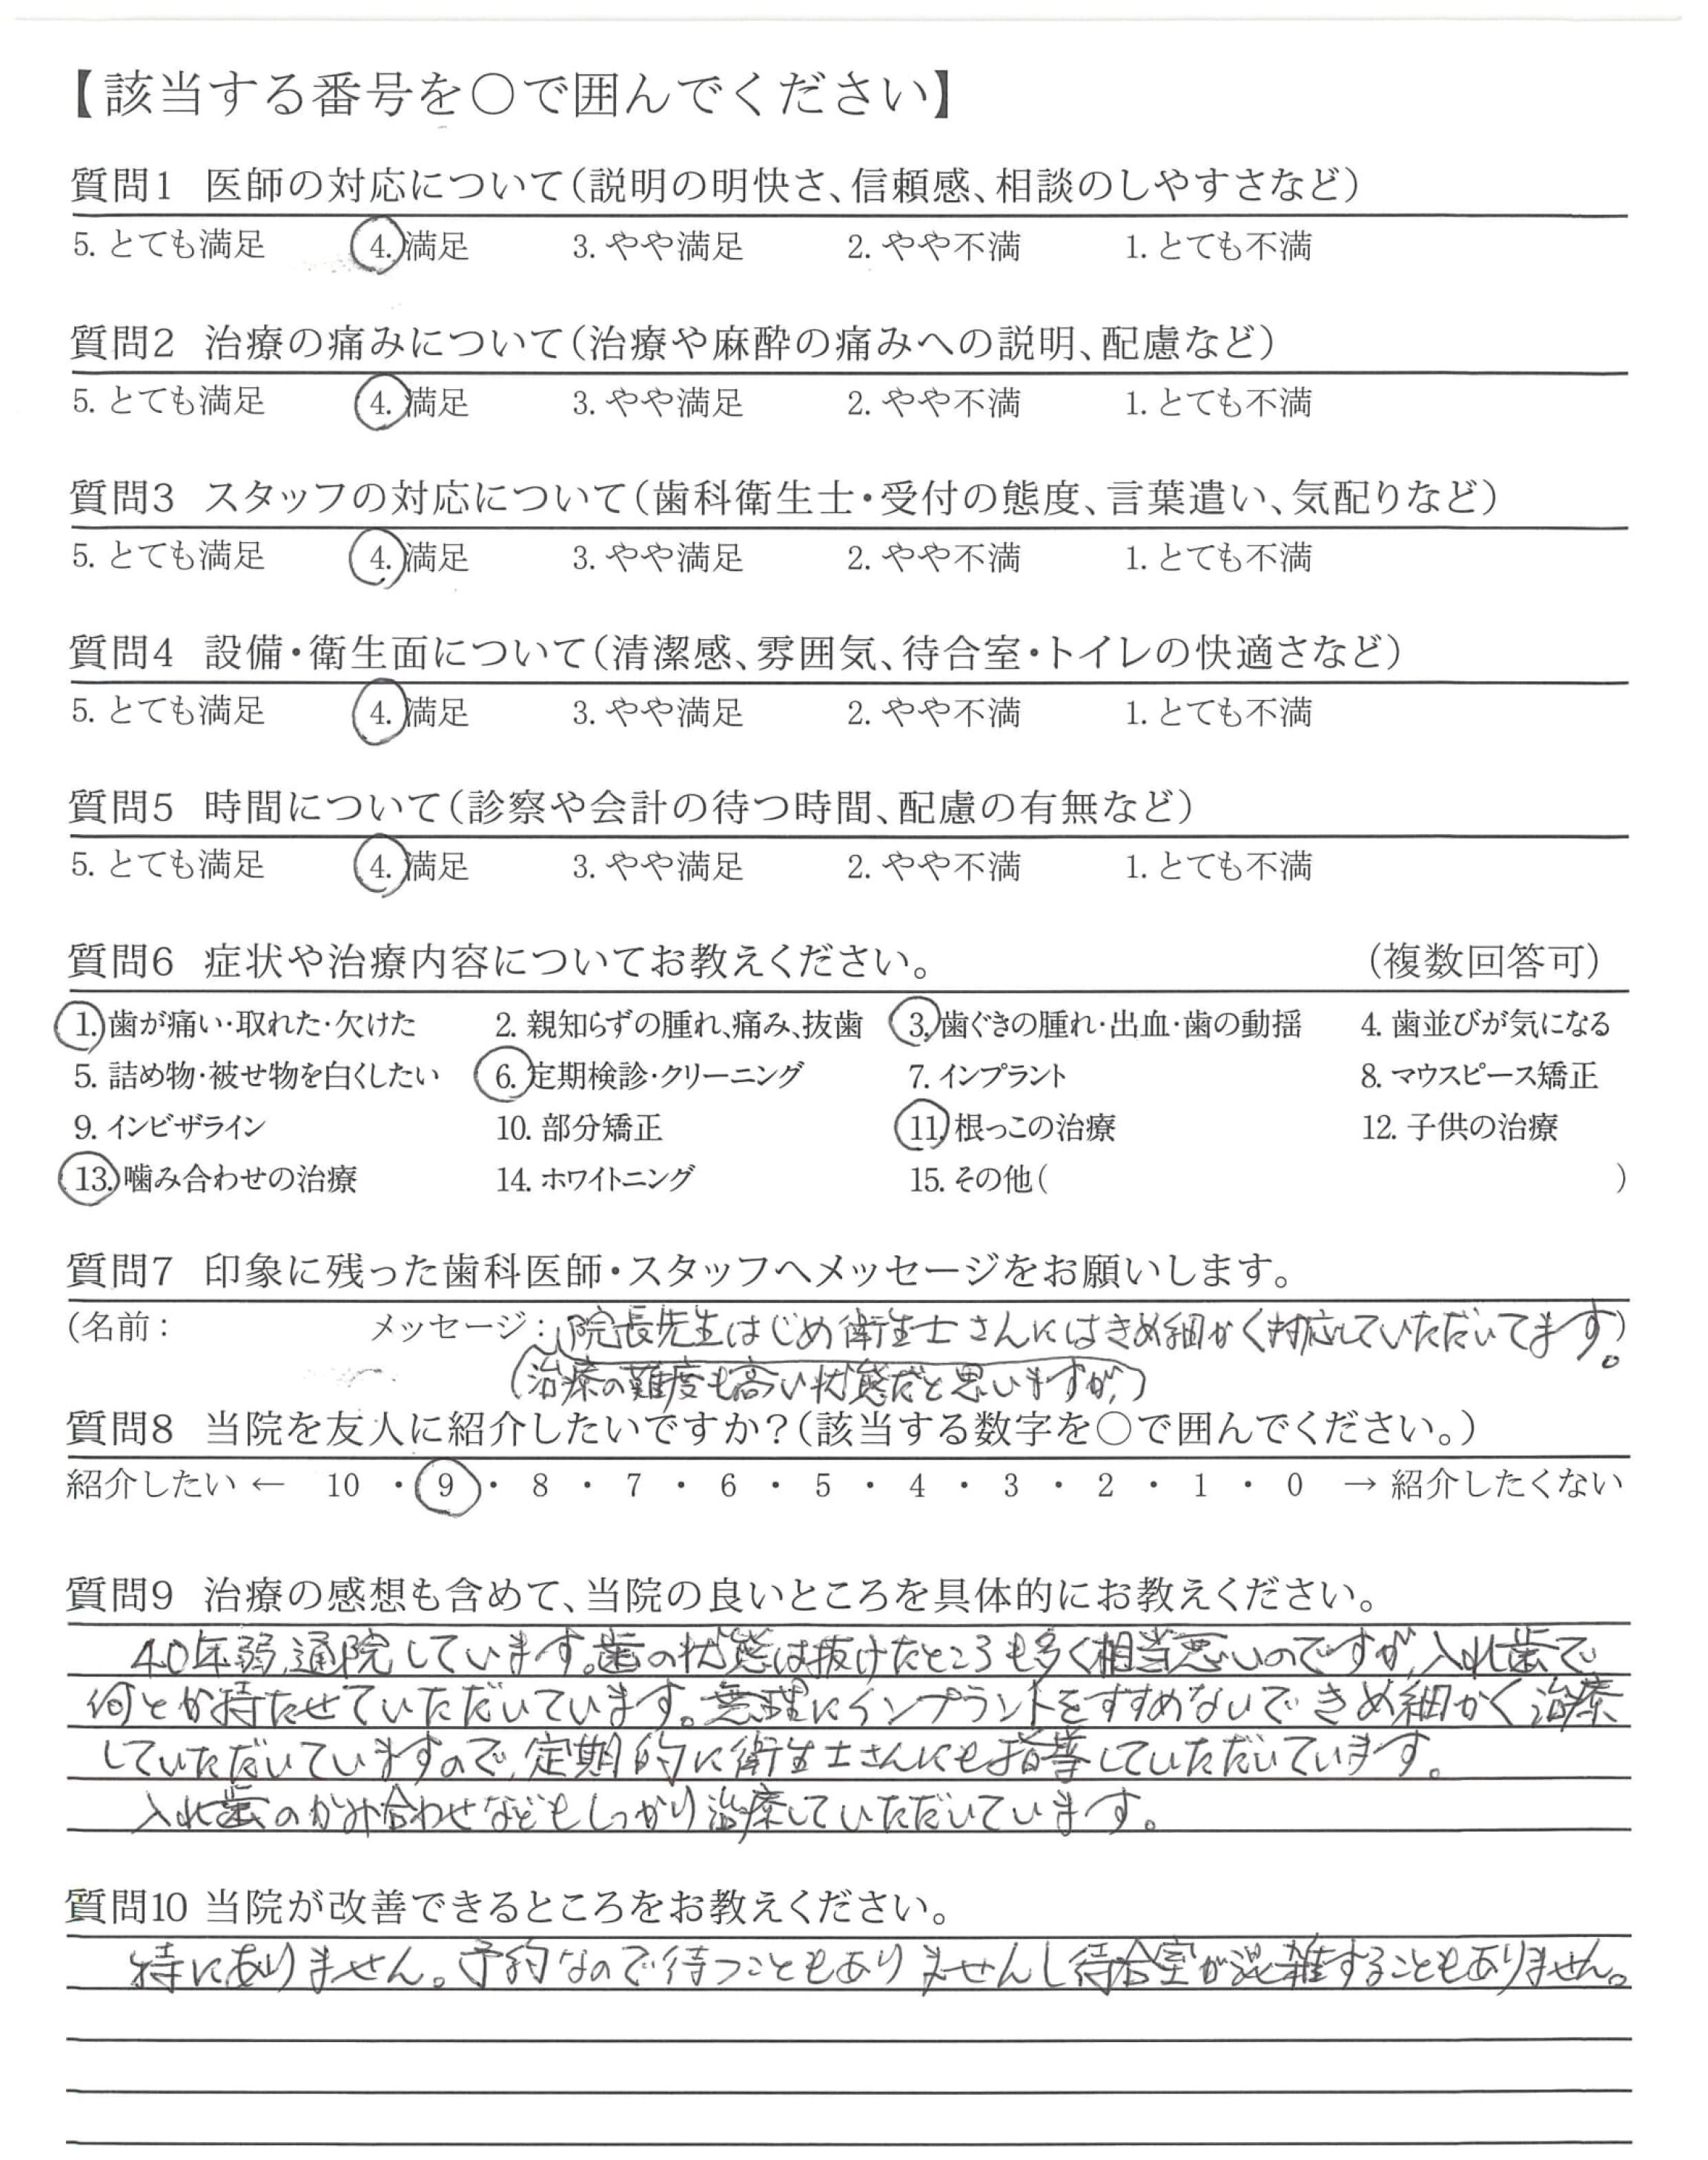 【該当する番号を○で囲んでください】
質問1 医師の対応について(説明の明快さ、信頼感、相談のしやすさなど)
5. とても満足 4. 満足 3. やや満足 2. やや不満 1. とても不満
質問2 治療の痛みについて(治療や麻酔の痛みへの説明、配慮など)
5. とても満足 4. 満足 3. やや満足 2. やや不満 1. とても不満
質問3 スタッフの対応について(歯科衛生士・受付の態度、言葉遣い、気配りなど)
5. とても満足 4. 満足 3. やや満足 2. やや不満 1. とても不満
質問4 設備・衛生面について(清潔感、雰囲気、待合室・トイレの快適さなど)
5. とても満足 4. 満足 3. やや満足 2. やや不満 1. とても不満
質問5 時間について(診察や会計の待つ時間、配慮の有無など)
5. とても満足 4. 満足 3. やや満足 2. やや不満 1. とても不満
質問6 症状や治療内容についてお教えください。 (複数回答可)
1. 歯が痛い・取れた・欠けた 2. 親知らずの腫れ、痛み、抜歯 3. 歯ぐきの腫れ・出血・歯の動揺 4. 歯並びが気になる
5. 詰め物・被せ物を白くしたい 6. 定期検診・クリーニング 7. インプラント 8. マウスピース矯正
9. インビザライン 10. 部分矯正 11. 根っこの治療 12. 子供の治療
13. 噛み合わせの治療 14. ホワイトニング 15. その他( )
質問7 印象に残った歯科医師・スタッフへメッセージをお願いします。
(名前: メッセージ: 院長先生はじめ衛生士さんにはきめ細かく対応していただいてます。)
(治療の難度も高い状態だと思いますが、)
質問8 当院を友人に紹介したいですか?(該当する数字を○で囲んでください。)
紹介したい ← 10 ・ 9 ・ 8 ・ 7 ・ 6 ・ 5 ・ 4 ・ 3 ・ 2 ・ 1 ・ 0 → 紹介したくない
質問9 治療の感想も含めて、当院の良いところを具体的にお教えください。
40年弱通院しています。歯の状態は抜けたところも多く相当悪いのですが、入れ歯で
何とか持たせていただいています。無理にインプラントをすすめないできめ細かく治療
していただいていますので、定期的に衛生士さんにも指導していただいています。
入れ歯のかみ合わせなどもしっかり治療していただいています。
質問10 当院が改善できるところをお教えください。
特にありません。予約なので待つこともありませんし待合室が混雑することもありません。